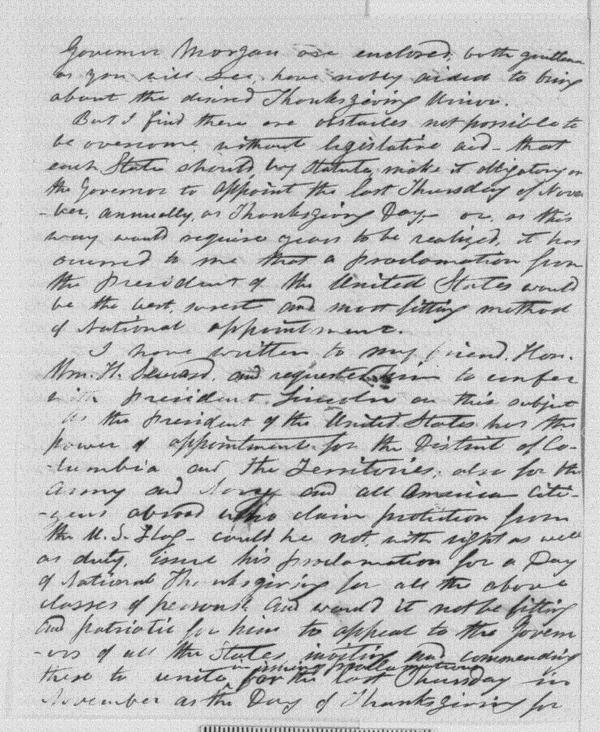 Governor Morgan are enclosed, both gentlemen
as you will see, have nobly aided to bring
about the desired Thanksgiving Union.
But I find there are obstacles not possible to
be overcome without legislative aid - that
each State should, by statute, make it obligatory on
the Governor to appoint the last Thursday of Novem
-ber, annually, as Thanksgiving Day; - or, as this
way would require years to be realized, it has
ocurred to me that a proclamation from
the President of the United States would
be the best, surest and most fitting method
of National appointment.
I have written to my friend, Hon.
Wm. H. Seward, and requested him to confer
with President Lincoln on this subject
As the President of the United States has the
power of appointments for the District of Co-
-lumbia and the Territories; also for the
Army and Navy and all American citi-
-zens abroad who claim protection from
the U. S. Flag - could he not, with right as well
as duty, issue his proclamation for a Day
of National Thanksgiving for all the above
classes of persons? And would it not be fitting
and patriotic for him to appeal to the Govern
-ors of all the States, inviting and commending
these to unite in issuing proclamations for the last Thursday in
November as the Day of Thanksgiving for